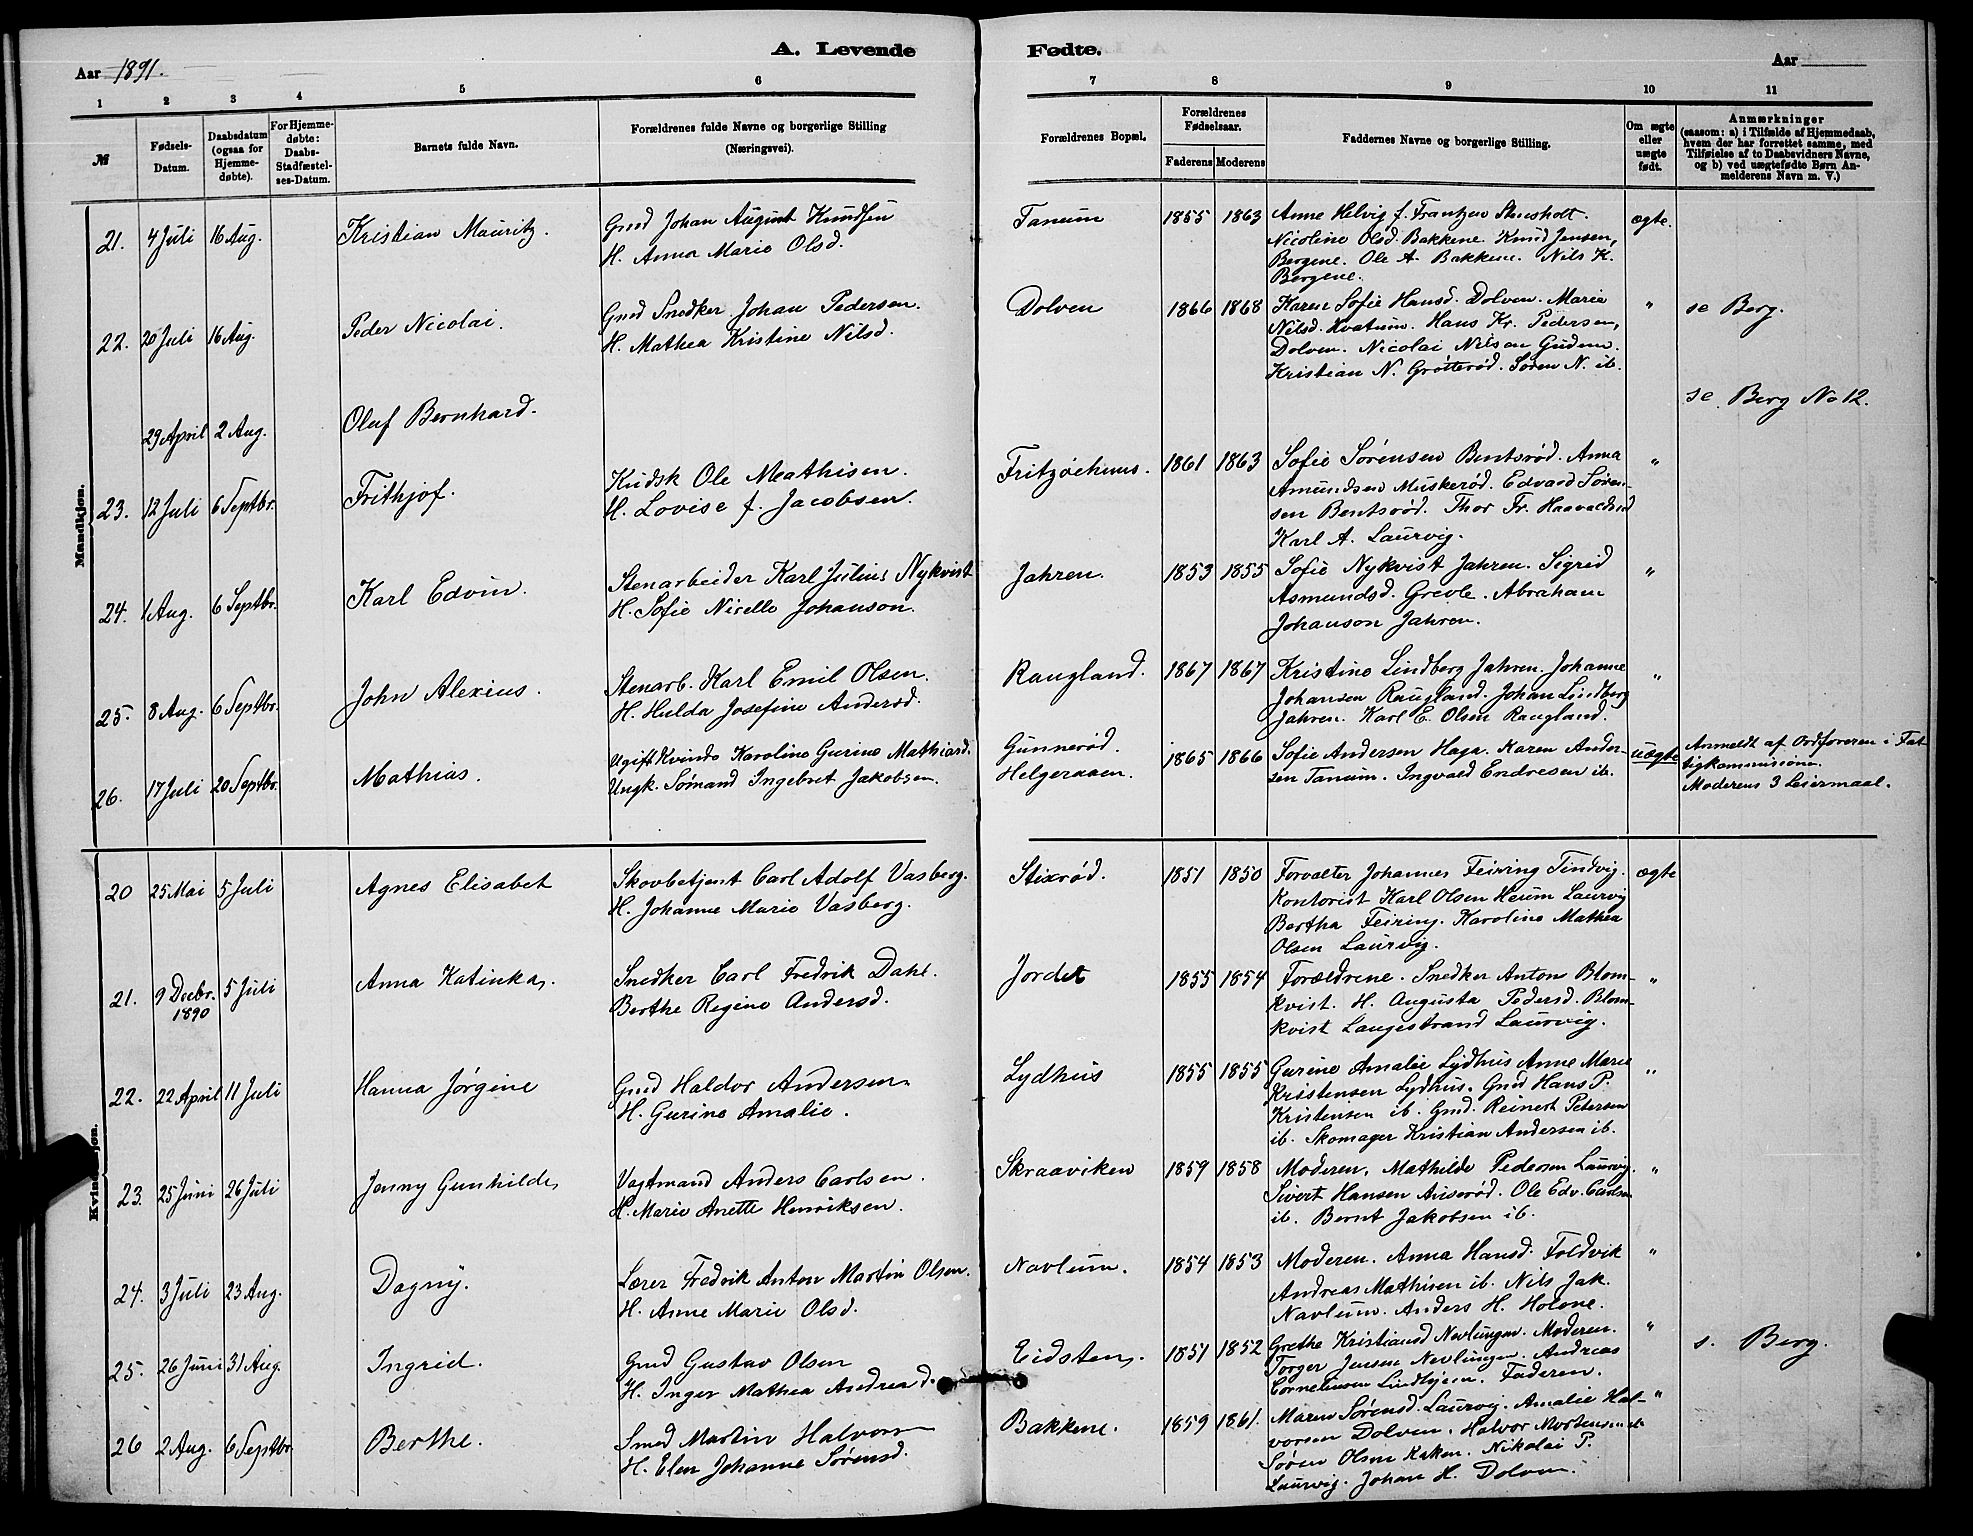 A. Levende Fødte.
Aar 1891.
Aar
1 2 3 4 5 6 7 8 9 10 11
№
Fødsels-Datum.
Daabsdatum (ogsaa for Hjemme-døbte).
For Hjemme-døbte: Daabs-Stadfæstel-ses-Datum.
Barnets fulde Navn.
Forældrenes fulde Navne og borgerlige Stilling (Næringsvei).
Forældrenes Bopæl.
Forældrenes Fødselsaar.
Faderens Moderens
Faddernes Navne og borgerlige Stilling.
Om ægte eller uægte født.
Anmærkninger (saasom: a) i Tilfælde af Hjemmedaab, hvem der har forrettet samme, med Tilføielse af to Daabsvidners Navne, og b) ved uægtefødte Børn An-melderens Navn m. V.)
Mandkjøn.
21. 4 Juli 16 Aug. Kristian Mauritz. Gmd Johan August Knudsen
H. Anna Marie Olsd.
Tanum 1855 1863 Anne Helvig f. Frantzen ægte.
Nicoline Olsd. Bakkene. Knud Jensen,
Bergene. Ole A. Bakkene. Nils K.
Bergene.
22. 20 Juli 16 Aug. Peder Nicolai. Gmd Snedker Johan Pedersen.
H. Mathea Kristine Nilsd.
Dolven 1866 1868 Karen Sofie Hansd. Dolven. Marie " se Berg.
Nilsd. Kvatum. Hans Kr. Pedersen,
Dolven. Nicolai Nilsen Gudem.
Kristian N. Grøtterød. Søren N. ib.
29 April 2 Aug. Oluf Bernhard. se Berg No 12.
23. 12 Juli 6 Septbr. Frithjof. Kudsk Ole Mathisen.
H. Lovise f. Jacobsen.
Fritzöehuus. 1861 1863 Sofie Sørensen Bentsrød. Anna "
Amundsen Muskerød. Edvard Søren-
sen Bentsrød. Thor Fr. Haavaldsrød
Karl A. Laurvig.
24. 1 Aug. 6 Septbr. Karl Edvin. Stenarbeider Karl Julius Nykvist
H. Sofie Nicello Johanson.
Jahren. 1853 1855 Sofie Nykvist Jahren. Sigrid "
Asmundsd. Grevle. Abraham
Johanson Jahren.
25. 8 Aug. 6 Septbr. John Alexius. Stenarb. Karl Emil Olsen.
H. Hulda Josefine Andersd.
Raugland. 1867 1867 Kristine Lindberg Jahren. Johanne "
Johansen Raugland. Johan Lindberg
Jahren. Karl E. Olsen Raugland.
26. 17 Juli 20 Septbr. Mathias. Ugift Kvinde Karoline Gurine Mathiasd.
Ungk. Sømand Ingebret Jakobsen.
Gunnerød. Helgeraaen. 1865 1866 Sofie Andersen Haga. Karen Ander-
sen Tanum. Ingvald Endresen ib.
uægte Anmeldt af Ordføreren i Fat-
tigkommissionen.
Moderens 3 Leiermaal.
Kvindekjøn.
20 25 Mai 5 Juli Agnes Elisabet Skovbetjent Carl Adolf Vasberg.
H. Johanne Marie Vasberg.
Stixrød. 1851 1850 Forvalter Johannes Feiring Tindvig. ægte
Kontorist Karl Olsen Heum Laurvig
Bertha Feiring. Karoline Mathea
Olsen Laurvig.
21. 9 Decbr. 1890 5 Juli Anna Katinka. Snedker Carl Fredrik Dahl.
Berthe Regine Andersd.
Jordet 1855 1854 Forældrene. Snedker Anton Blom- "
kvist. H. Augusta Pedersd. Blom-
kvist Langestrand Laurvig.
22. 22 April 11 Juli Hanna Jørgine Gmd Haldor Andersen
H. Gurine Amalie.
Lydhus 1855 1855 Gurine Amalie Lydhus Anne Marie "
Kristensen Lydhus. Gmd Hans P.
Kristensen ib. Gmd. Reinert Petersen
ib. Skomager Kristian Andersen ib.
23. 25 Juni 26 Juli Jenny Gunhilde Vagtmand Anders Carlsen.
H. Marie Anette Henriksen.
Skraaviken 1859 1858 Moderen. Mathilde Pedersen Laurvig. "
Sivert Hansen Auserød. Ole Edv. Carlsen
ib. Bernt Jakobsen ib.
24. 3 Juli 23 Aug. Dagny. Lærer Fredrik Anton Martin Olsen.
H. Anne Marie Olsd.
Navlum. 1854 1853 Moderen. Anna Hansd. Foldvik "
Andreas Mathisen ib. Nils Jak.
Navlum. Anders H. Holone.
25. 26 Juni 31 Aug. Ingrid. Gmd Gustav Olsen
H. Inger Mathea Andread.
Eidsten. 1851 1852 Grethe Kristiansd Nevlungen. Moderen. " s. Berg.
Torger Jensen Nevlungen. Andreas
Corneliussen Lindhjem. Faderen.
26 2 Aug. 6 Septbr. Berthe. Smed Martin Halvorsen
H. Elen Johanne Sørensd.
Bakkene. 1859 1861. Maren Sørensd. Laurvig. Amalie Hal- "
vorsen Dolven. Halvor Mortensen ib.
Søren Olsen Kaken. Nikolai P.
Laurvig. Johan H. Dolven.